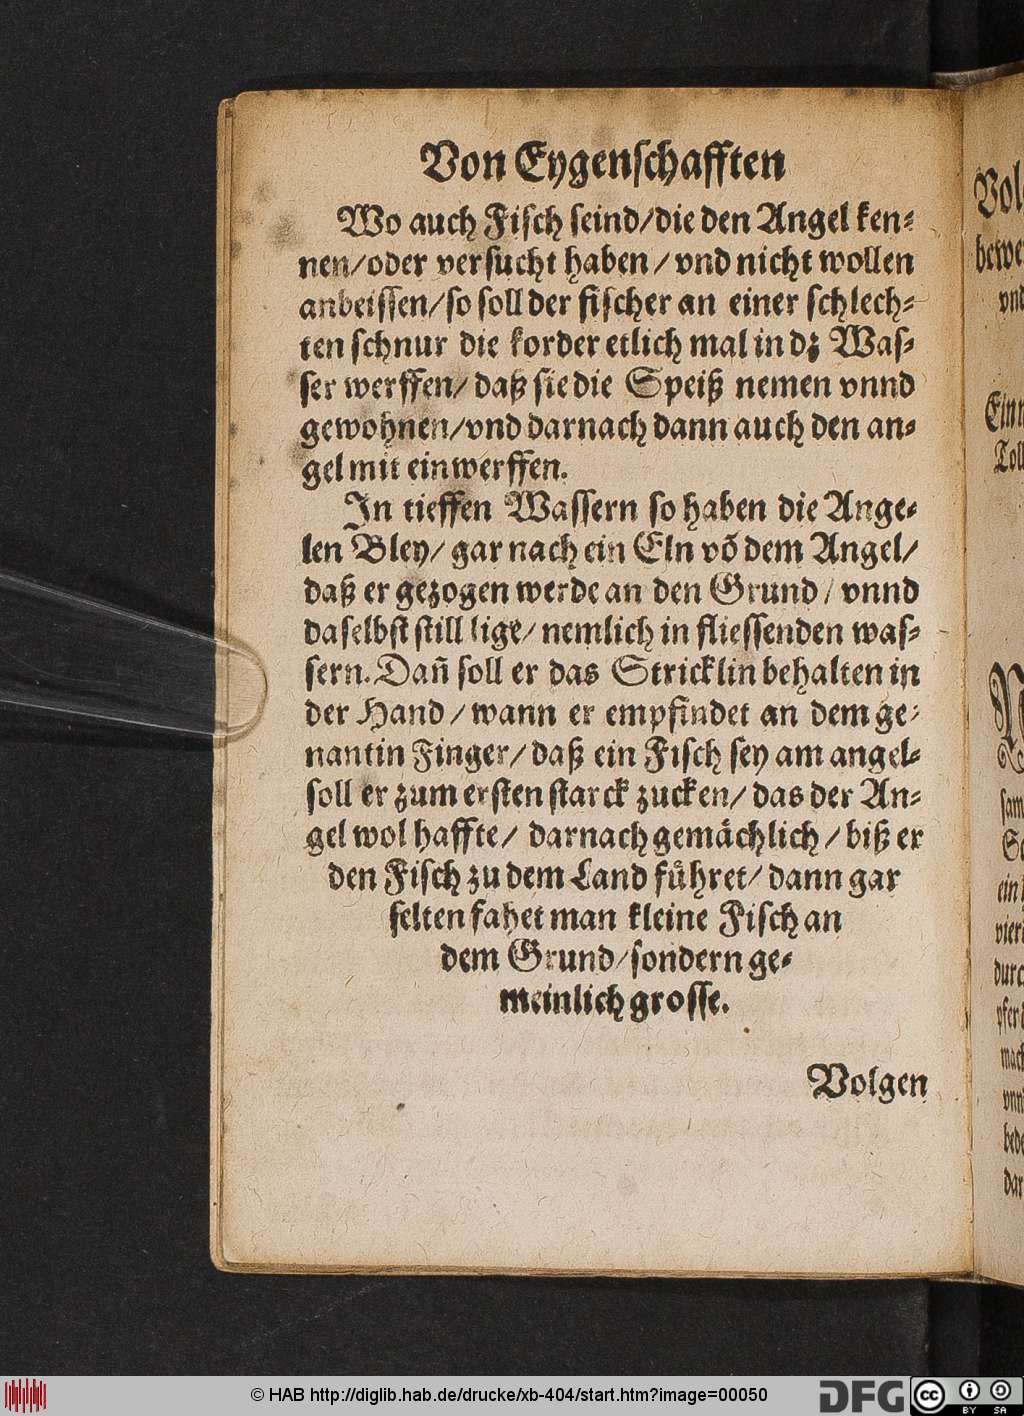 Von Eygenschafften
Wo auch Fisch seind/die den Angel ken-
nen/oder versucht haben/vnd nicht wollen
anbeissen/so soll der fischer an einer schlech-
ten schnur die korder etlich mal in dz Was-
ser werffen/daß sie die Speiß nemen vnnd
gewohnen/vnd darnach dann auch den an-
gel mit einwerffen.
In tieffen Wassern so haben die Ange-
len Bley/gar nach ein Eln võ dem Angel/
daß er gezogen werde an den Grund/vnnd
daselbst still lige/nemlich in fliessenden was-
sern. Dañ soll er das Stricklin behalten in
der Hand/wann er empfindet an dem ge-
nantin Finger/daß ein Fisch sey am angel-
soll er zum ersten starck zucken/das der An-
gel wol haffte/darnach gemächlich/biß er
den Fisch zu dem Land führet/dann gar
selten fahet man kleine Fisch an
dem Grund/sondern ge-
meinlich grosse.
Volgen
Vol
bewe
vnd
Einn
Toll
sam
ein
vier
durc
pfer
mach
vnn
bede
dar
© HAB http://diglib.hab.de/drucke/xb-404/start.htm?image=00050
DFG
cc
BY SA